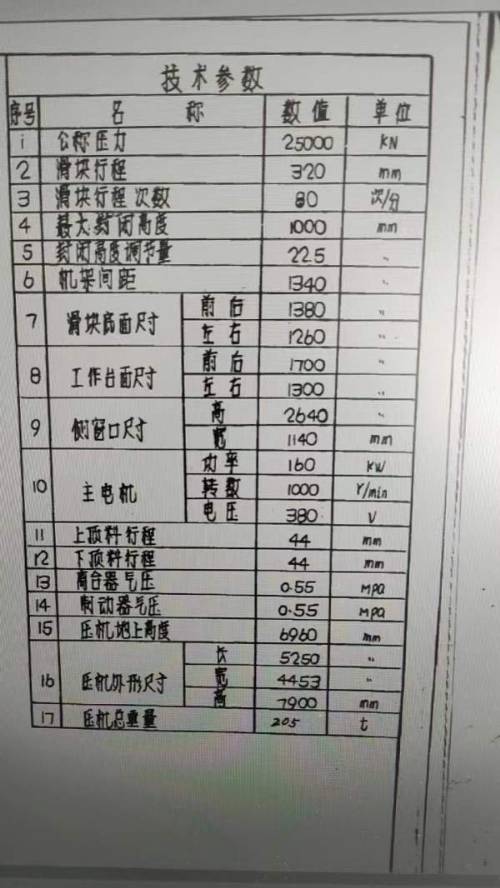 技术参数
序号 名 称 数值 单位
1 公称压力 25000 KN
2 滑块行程 320 mm
3 滑块行程次数 80 次/分
4 最大封闭高度 1000 mm
5 封闭高度调节量 22.5 〃
6 机架间距 1340 〃
7 滑块底面尺寸 前后 1380 〃
左右 1260 〃
8 工作台面尺寸 前后 1700 〃
左右 1300 〃
9 侧窗口尺寸 高 2640 〃
宽 1140 mm
10 主电机 功率 160 kW
转数 1000 r/min
电压 380 V
11 上顶料行程 44 mm
12 下顶料行程 44 mm
13 离合器气压 0.55 MPa
14 制动器气压 0.55 MPa
15 压机地上高度 6960 mm
16 压机外形尺寸 长 5250 〃
宽 4453 〃
高 7900 mm
17 压机总重量 205 t